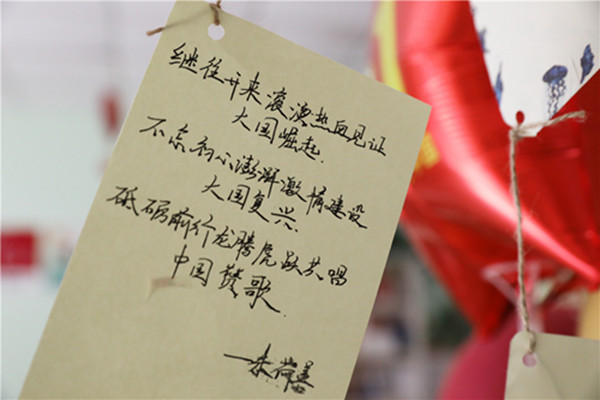 继往开来滚烫热血见证
大国崛起.
不忘初心澎湃激情建设
大国复兴.
砥砺前行龙腾虎跃共唱
中国赞歌.